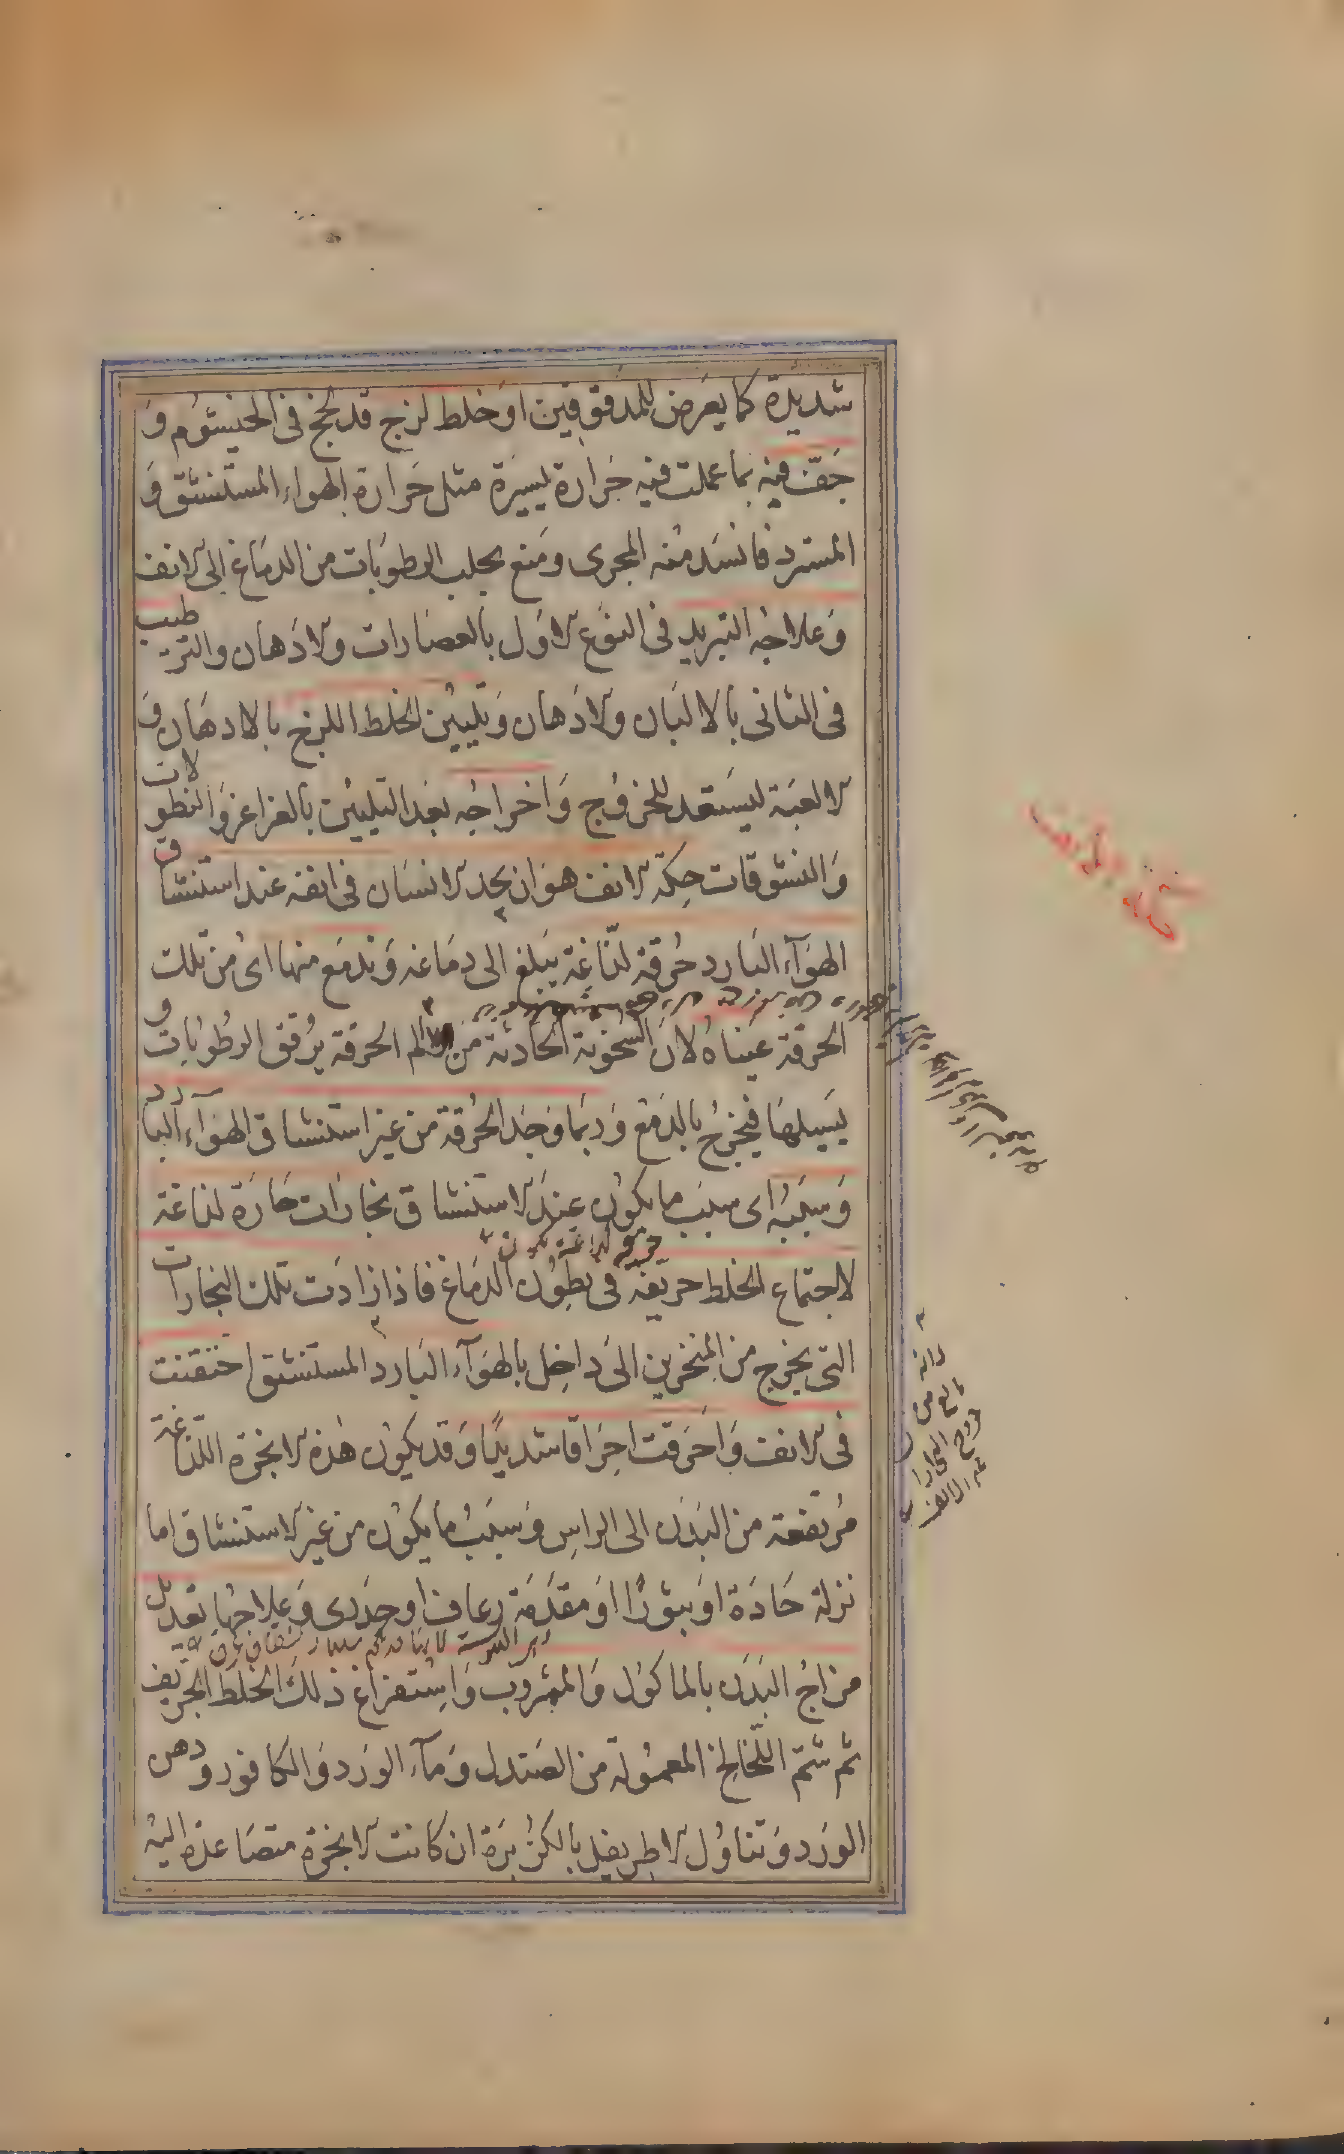 شديدة كما يعرض للمدقوقين او خلط لزج قد لحج فى الخيشوم و
جفّ فيه بما عملت فيه حرارة يسيرة مثل حرارة الهواء المستنشق و
المسترد فانسد منه المجرى ومنع تجلب الرطوبات من الدماغ الى الانف
وعلاجه التبريد فى النوع الاول بالعصارات والادهان والترطيب
فى الثانى بالالبان والادهان وتليين الخلط اللزج بالادهان و
الالعبة ليستعد للخروج واخراجه بعد التليين بالغراغر والنطولات
والنشوقات حكة الانف هو ان يجد الانسان فى انفه عند استنشاق
الهوآء البارد حرقة لذّاعة يبلغ الى دماغه وتدمع منها اى من تلك
الحرقة عيناه لان السخونة الحادثة من الم الحرقة يرقق الرطوبات و
يسيلها فيخرج بالدمع وربما وجد الحرقة من غير استنشاق الهوآء البارد
وسببه اى سبب ما يكون عند الاستنشاق بخارات حارة لذاعة
لاجتماع الخلط حريفة فى بطون الدماغ فاذا زادت تلك البخارات
التى يخرج من المنخرين الى داخل بالهوآء البارد المستنشق احتقنت
فى الانف واحرقت احراقا شديدًا وقد يكون هذه الابخرة اللذاعة
مرتفعة من البدن الى الراس وسبب ما يكون من غير الاستنشاق اما
نزلة حادة او بثورًا او مقدمة رعاف او جدرى وعلاجها تعديل
مزاج البدن بالماكول والمشروب واستفراغ ذلك الخلط الحريف
ثم شمّ اللخالخ المعمولة من الصندل ومآء الورد والكافور ودهن
الورد وتناول الاطريفل بالكزبرة ان كانت الابخرة متصاعدة اليه
حكة الانف